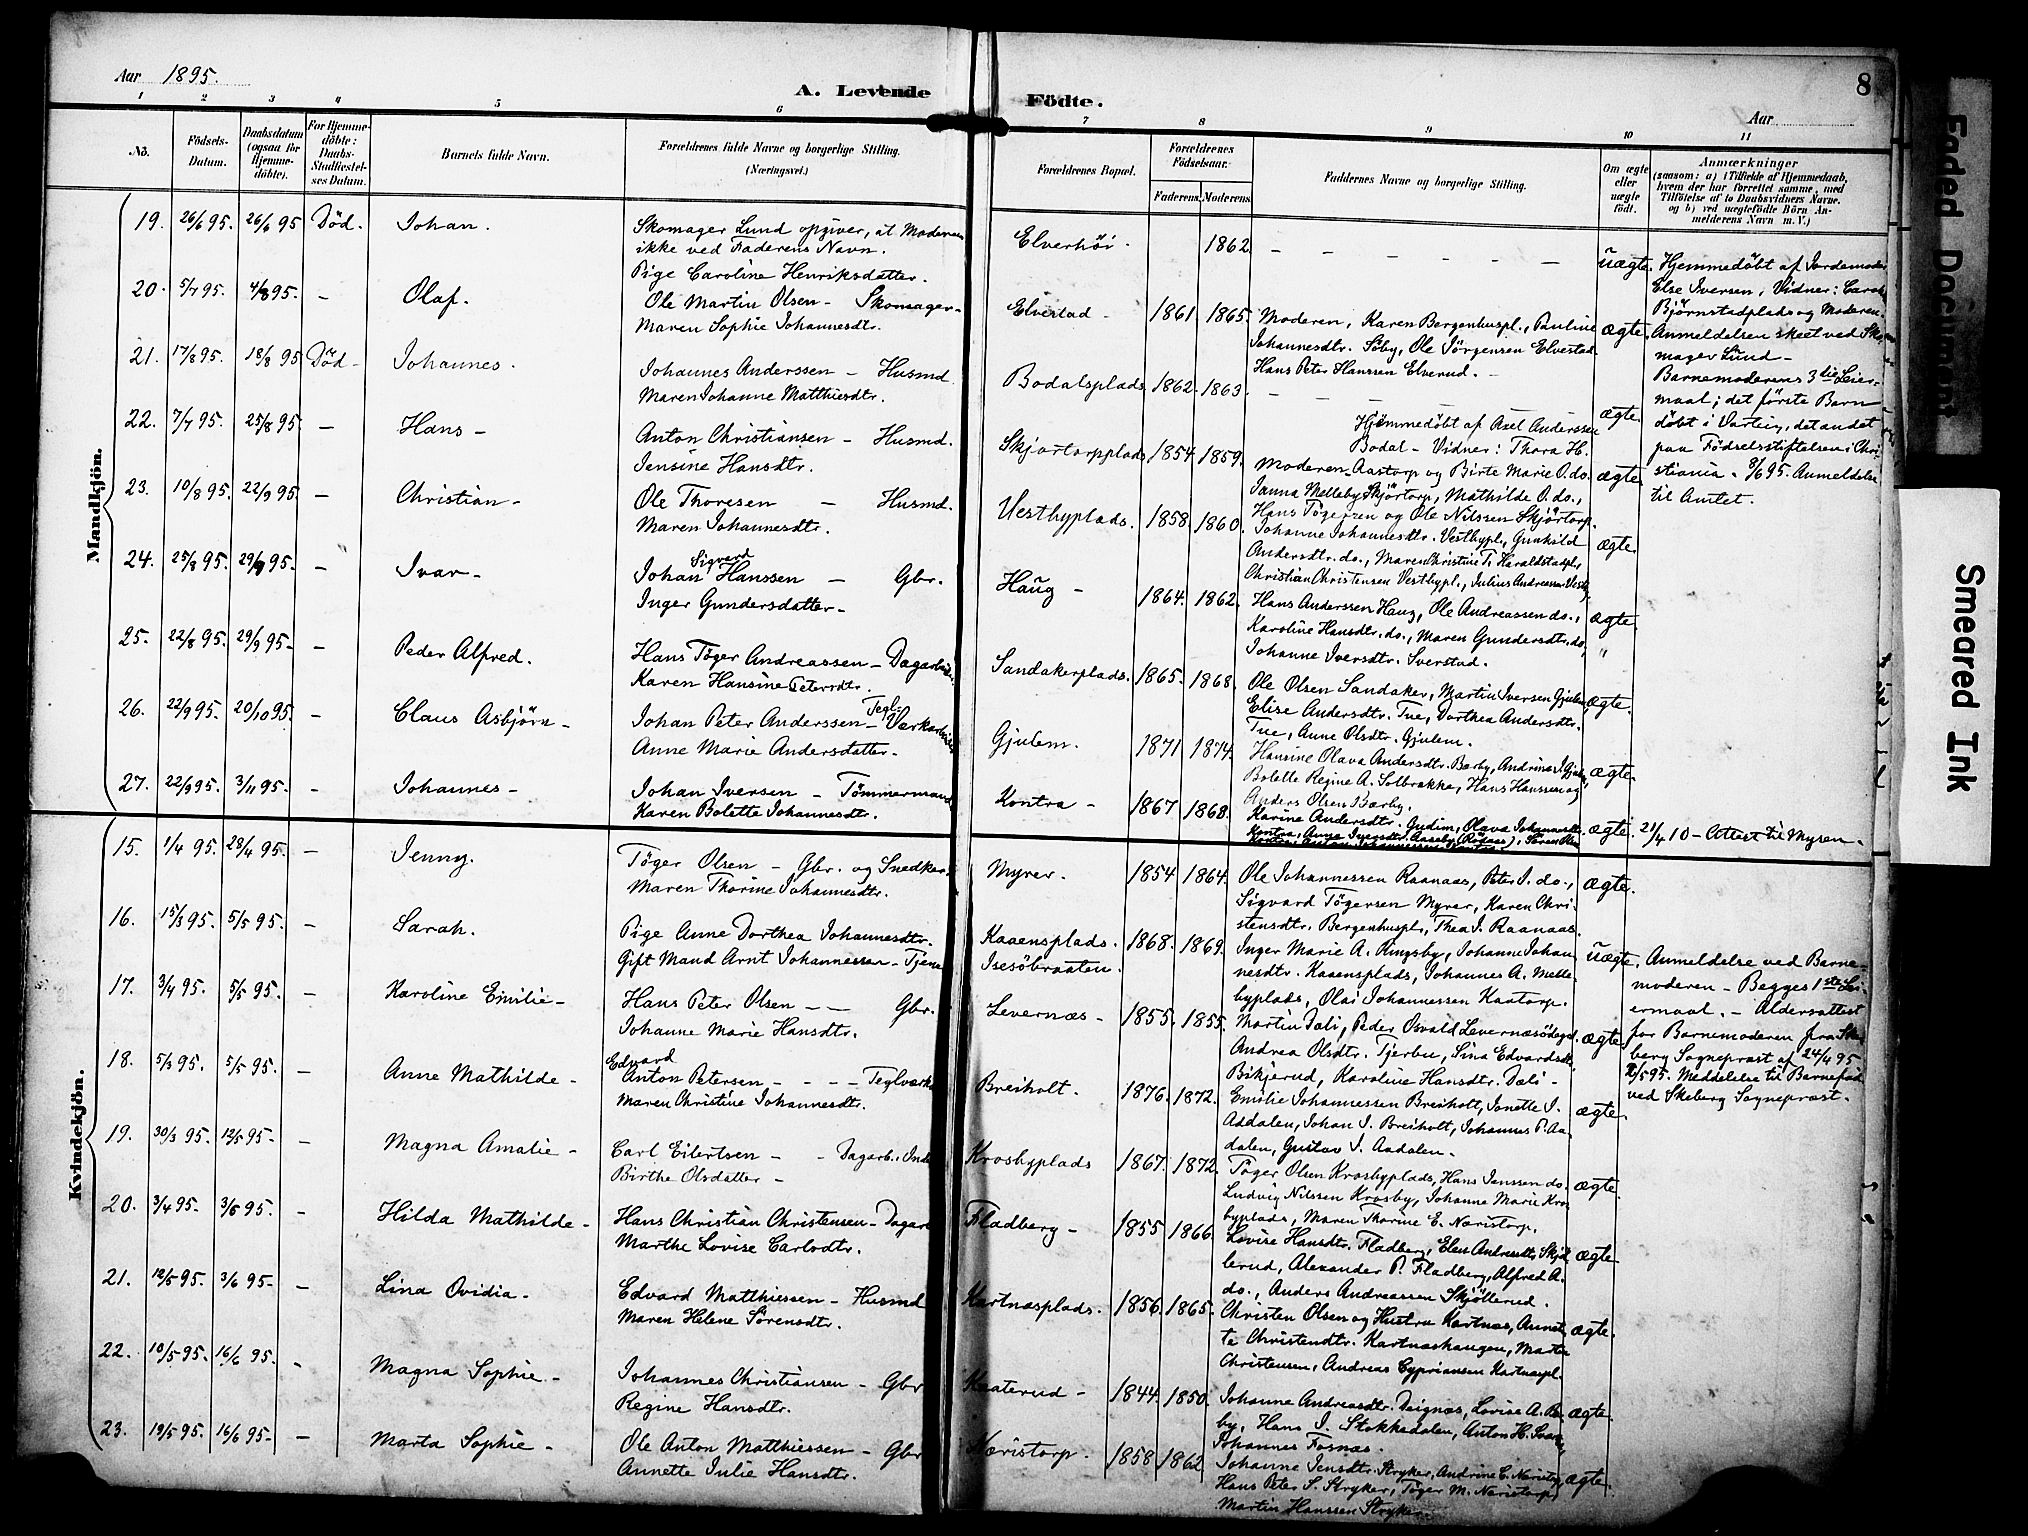 Aar 1895.
A. Levende
Födte.
8
Aar
1 2 3 4 5 6 7 8 9 10 11
No.
Födsels-Datum.
Daabsdatum (ogsaa for Hjemme-döbte).
For Hjemme-döbte: Daabs-Stadfæstel-ses Datum.
Barnets fulde Navn.
Forældrenes fulde Navne og borgerlige Stilling. (Næringsvei.)
Forældrenes Bopæl.
Forældrenes Födselsaar.
Faderens. Moderens.
Faddernes Navne og borgerlige Stilling.
Om ægte eller uægte födt.
Anmærkninger
(saasom: a) i Tilfælde af Hjemmedaab, hvem der har forrettet samme, med Tilföielse af to Daabsvidners Navne, og b) ved uægtefödte Börn An-melderens Navn m. V.)
Mandkjön.
19. 26/6 95. 26/6 95 Död. Johan.
Skomager Lund opgiver, at Moderen
ikke ved Faderens Navn.
Pige Caroline Henriksdatter.
Elverhöi. 1862. – – – – – – uægte.
20. 5/7 95. 4/8 95. – Olaf.
Ole Martin Olsen – Skomager –
Maren Sophie Johannesdtr.
Elvestad – 1861. 1865.
Moderen, Karen Bergenhuspl., Pauline
Johannesdtr. Söby, Ole Jörgensen Elvestad
Hans Peter Hanssen Elverud. –
ægte.
21. 17/8 95. 18/8 95 Död – Johannes.
Johannes Anderssen – Husmd.
Maren Johanne Matthiesdtr.
Bodalsplads 1862. 1863. – – – – ægte.
Hjemmedöbt af Axel Anderssen
Bodal – Vidner: Thora H.
Aastorp og Birte Marie O. do.
22. 7/7 95. 25/8 95. – Hans –
Anton Christiansen – Husmd.
Jensine Hansdtr.
Skjörtorpplads 1854. 1859.
Moderen
Janna Melleby Skjörtorp, Mathilde O. do.,
Hans Tögersen og Ole Nilssen Skjörtorp.
ægte
23. 10/8 95. 22/9 95. – Christian –
Ole Thoresen – Husmd.
Maren Johannesdtr.
Vestbyplads. 1858. 1860.
Johanne Johannesdtr. Vestbypl., Gunhild
Andersdtr. do., Maren Christine T. Haraldstadpl.,
Christian Christensen Vestbypl., Julius Andreassen Vestby
ægte.
24. 25/8 95. 29/9 95. – Ivar –
Johan Sigvard Hanssen – Gbr.
Inger Gundersdatter –
Haug – 1864. 1862.
Hans Anderssen Haug, Ole Andreassen do.,
Karoline Hansdtr. do., Maren Gundersdtr. do,
Johanne Iversdtr. Sverstad.
ægte.
"
25. 22/8 95. 29/9 95 – – Peder Alfred.
Hans Töger Andreassen – Dagarbeider
Karen Hansine Petersdtr.
Sandakerplads. 1865. 1868.
Ole Olsen Sandaker, Martin Iversen Gjulem,
Elise Andersdtr. Tue, Dorthea Andersdtr.
Tue, Anne Olsdtr. Gjulem.
ægte.
26. 22/9 95. 20/10 95. – Claus Asbjörn –
Johan Peter Anderssen – Tegl-Værkarbeider
Anne Marie Andersdatter –
Gjulem. 1871 1874.
Hansine Olava Andersdtr. Bærby, Andrine J. Gjulem,
Bolette Regine A. Solbrække, Hans Hanssen og
Anders Olsen Bærby.
ægte.
27. 22/9 95. 3/11 95. – Johannes –
Johan Iversen – Tömmermand
Karen Bolette Johannesdtr.
Kontra – 1867 1868.
Karine Andersdtr. Gudim, Olava Johannesdtr.
ægte. 21/4 10 – Attest til Myren.
Hjemmedöbt af Jordemoder
Else Iversen, Vidner: Carah
Björnstadplads og Moderen.
Anmeldelsen skeet ved Sko-
mager Lund –
Barnemoderens 3die Leier-
maal; det förste Barn
döbt i Varteig, det andet
paa Födselsstiftelsen i Chri-
stiania. 8/6 95. Anmeldelse
til Amtet.
Kvindekjön.
15. 1/4 95. 28/4 95. – Jenny.
Töger Olsen – Gbr. og Snedker
Maren Thorine Johannesdtr.
Myrer. 1854 1864.
Ole Johannessen Raanaas, Peter J. do.,
Sigvard Tögersen Myrer, Karen Chri-
stensdtr. Bergenhuspl., Thea J. Raanaas.
ægte.
16. 15/3 95. 5/5 95. – Sarah.
Pige Anne Dorthea Johannesdtr.
Gift Mand Arnt Johannessen – Tjener
Kaaensplads. Isesöbraaten. 1868. 1869.
Inger Marie A. Ringsby, Johanne Johan-
nesdtr. Kaaensplads, Johannes A. Melle-
byplads, Olai Johannessen Kaatorp.
uægte.
Anmeldelse ved Barne-
moderen – Begges 1ste Lei-
ermaal. – Aldersattest
for Barnemoderen fra Ske-
berg Sogneprest af 24/4 95
Meddelelse til Barnefad.
ved Skeberg Sogneprest.
17. 3/4 95. 5/5 95. – Karoline Emilie –
Hans Peter Olsen – – Gbr.
Johanne Marie Hansdtr.
Levernæs – 1855. 1855.
Martin Dali, Peder Osvald Levernæsödegd.
Andrea Olsdtr. Tjerbu, Lina Edvardsdtr.
Bikjerud, Karoline Hansdtr. Dali –
ægte.
18. 5/3 95. 5/5 95. – Anne Mathilde –
Edvard
Anton Petersen – – – Teglværks
Maren Christine Johannesdtr.
Breiholt. 1876. 1872.
Emilie Johannessen Breiholt, Janette J.
Addalen, Johan J. Breiholt, Johannes P. Aa-
dalen, Gustav J. Aadalen –
ægte.
19. 30/3 95. 12/5 95 – – Magna Amalie –
Carl Eilertsen – – Dagarb., Ind
Birthe Olsdatter –
Krosbyplads 1867. 1872.
Töger Olsen Krosbyplads, Hans Jenssen do.
Ludvig Nilssen Krosby, Johanne Marie Kros-
byplads, Maren Thorine E. Næristorp.
ægte.
20. 3/4 95. 3/6 95. – Hilda Mathilde –
Hans Christian Christensen – Dagarb
Marthe Lovise Carlsdtr.
Fladberg – 1855 1866.
Lovise Hansdtr. Fladberg, Elen Andreasdtr. Skjöl-
lerud, Alexander P. Fladberg, Alfred A.
do., Anders Andreassen Skjöllerud.
ægte
21. 12/5 95. 3/6 95 – – Lina Ovidia –
Edvard Matthiessen – Husmd
Maren Helene Sörensdtr.
Kartnæsplads. 1856. 1865.
Christen Olsen og Hustru Kartnæs, Annet-
te Christensdtr. Kartnæshaugen, Martin
Christensen, Andreas Cypriansen Kartnæspl.
ægte.
22. 10/5 95. 16/6 95. – Magna Sophie –
Johannes Christiansen – Gbr
Regine Hansdtr.
Kaaterud – 1844. 1850.
Johanne Andreasdtr. Deignæs, Lovise A. B
by, Hans J. Stokkedalen, Anton H.
Johannes Fosnæs.
ægte.
23. 19/5 95. 16/6 95 – – Marta Sophie –
Ole Anton Matthiessen – Gbr
Annette Julie Hansdtr.
Næristorp. 1858 1862
Johanne Jensdtr. Stryker, Andrine C.
Hans Peter S. Stryker, Töger M. Næristorp,
Martin Hanssen Stryker.
ægte.
Faded Document
Smeared Ink